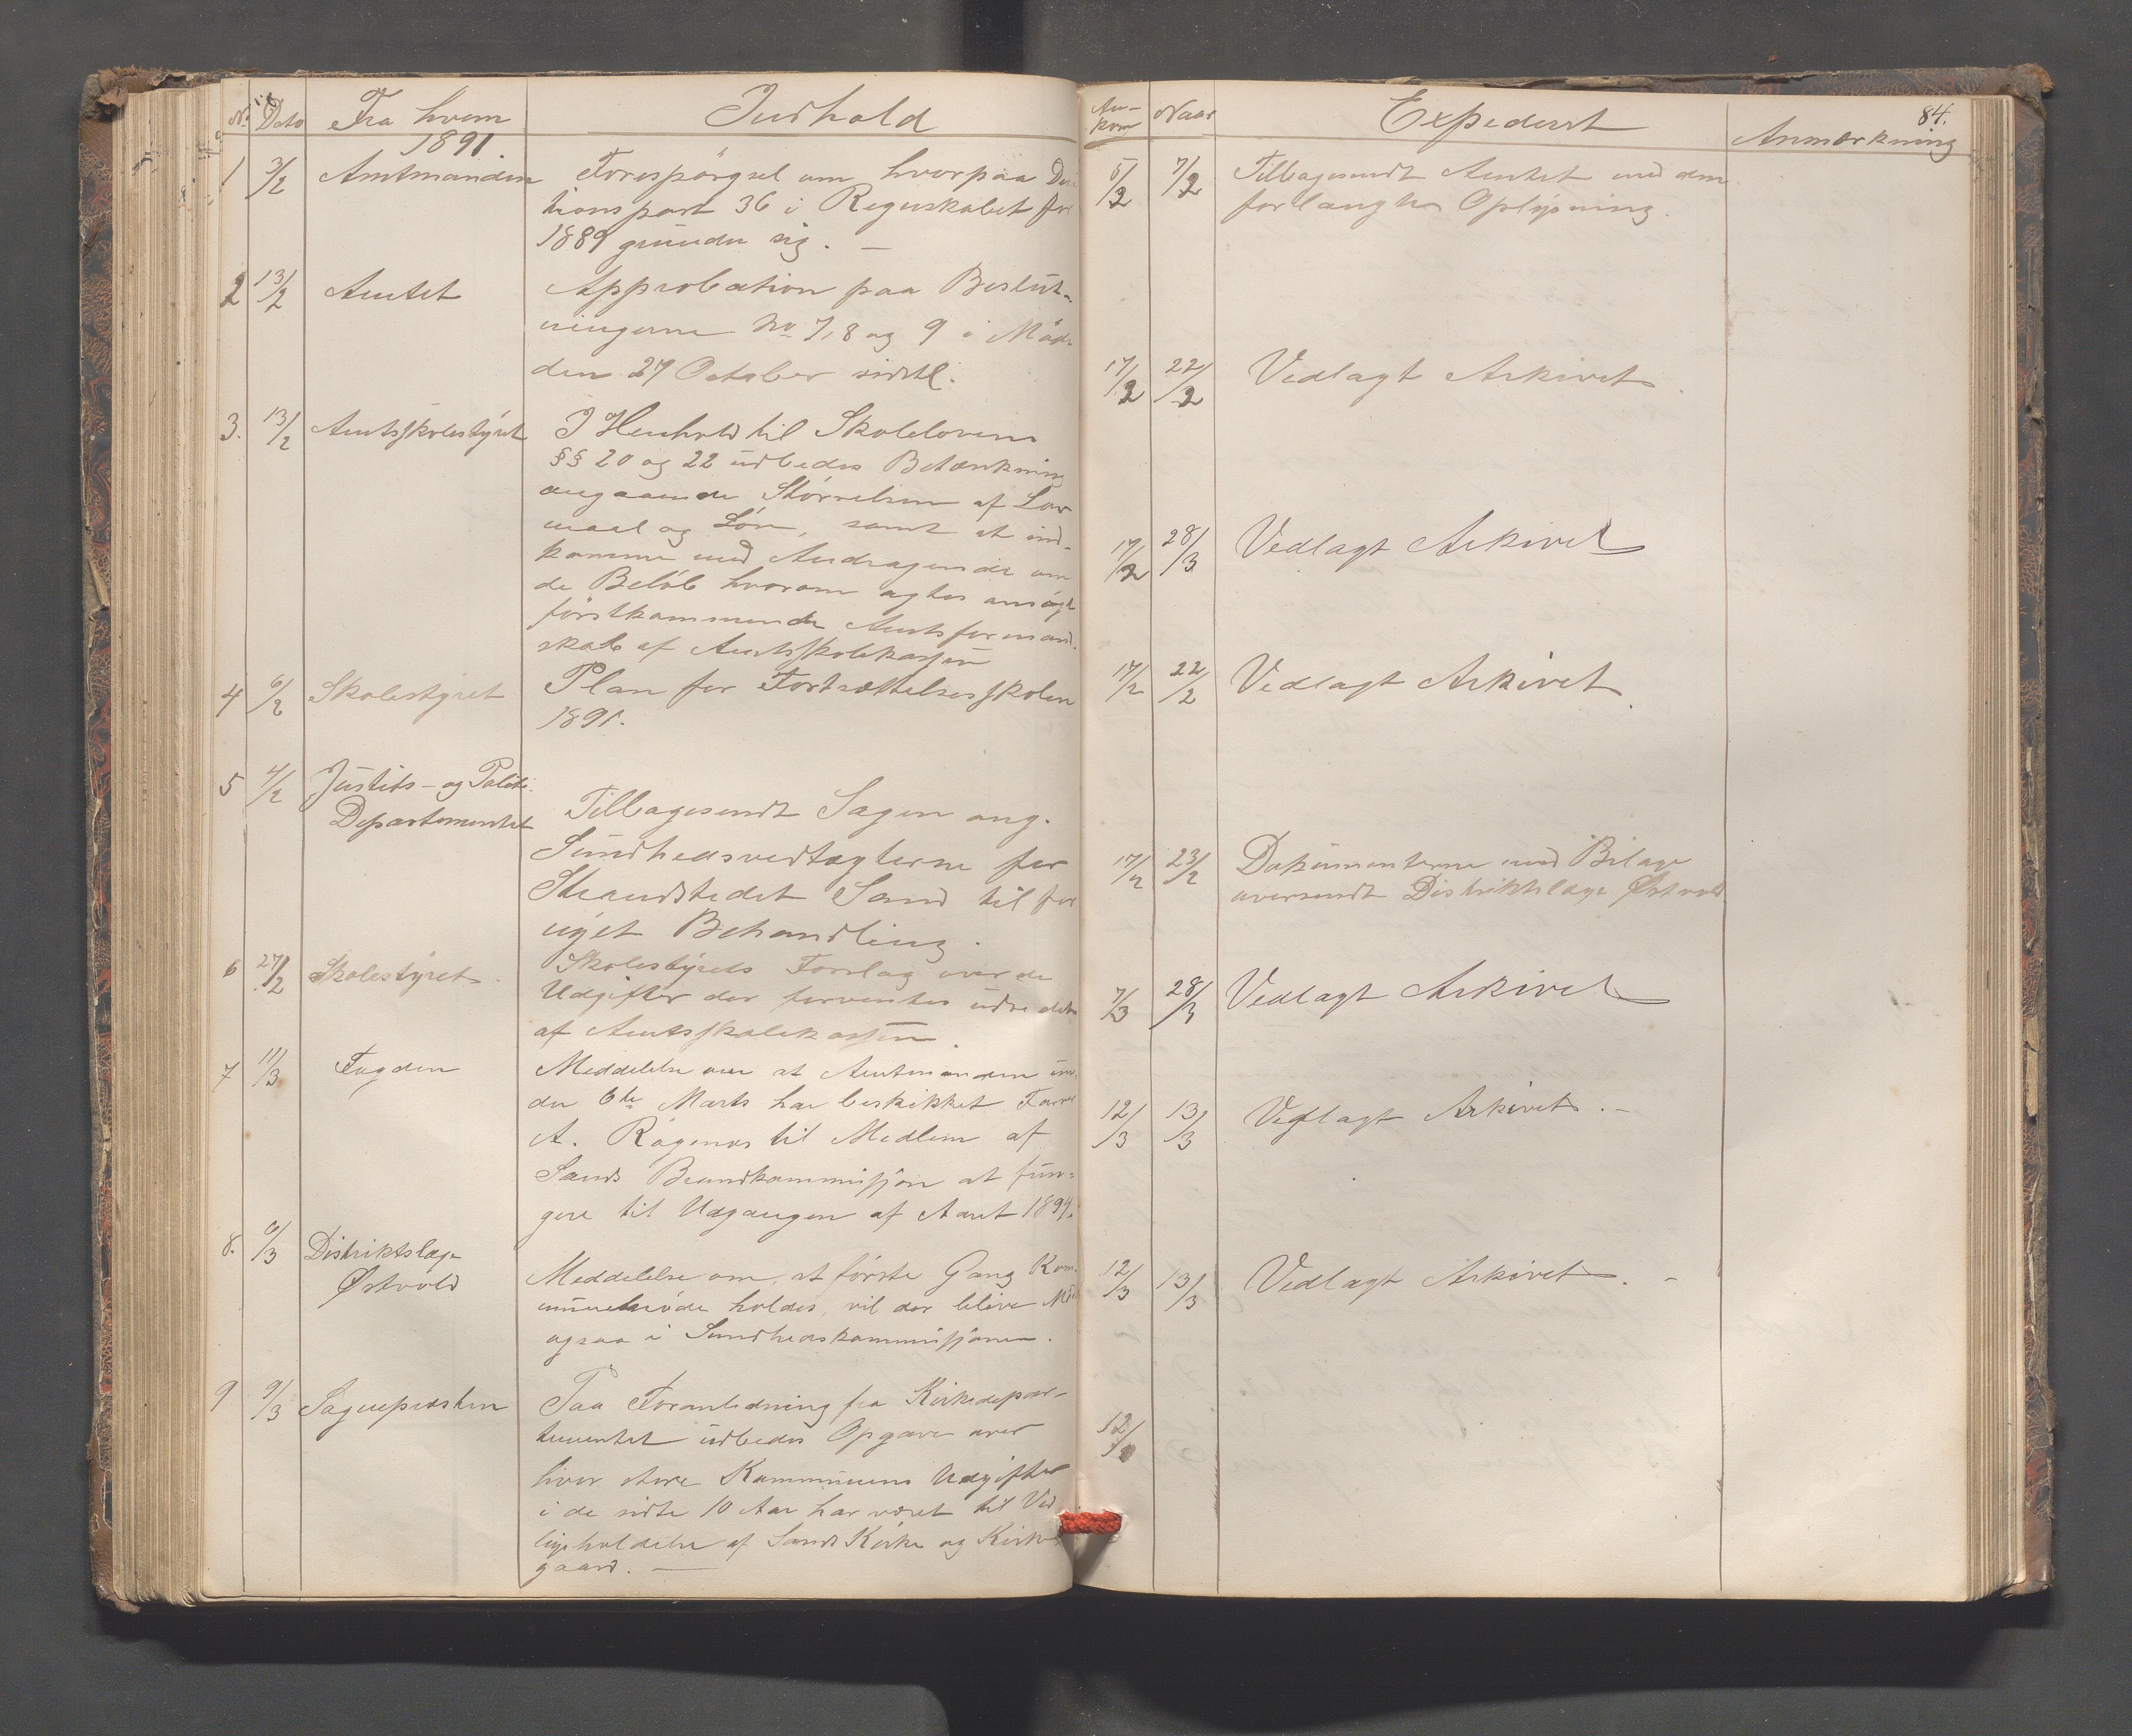 No Dato Fra hvem Indhold
1891.
1 3/2 Amtmanden Forespørgsel om hvorpaa De-
tionspost 36 i Regnskabet for
1889 grunder sig. —
2 13/2 Amtet Approbation paa Beslut-
ningerne No 7, 8 og 9 i Møde
den 27 October sidstl.
3. 13/2 Amtsskolestyret I Henhold til Skolelovens
§§ 20 og 22 udbedes Betænkning
angaaende Størrelsen af Lov
maal og Løn, samt at ind-
komme med Andragende om
de Beløb hvorom agtes ansøgt
førstkommende Amtsformand-
skab af Amtsskolekassen
4 6/2 Skolestyret Plan for Fortsættelsesskolen
1891.
5 4/2 Justits- og Politi-
Departementet Tilbagesendt Sagen ang.
Sundhedsvedtægterne for
Strandstedet Sand til for
nyet Behandling.
6 27/2 Skolestyret. Skolestyrets Forslag over de
Udgifter der forventes udredet
af Amtsskolekassen.
7 11/3 Fogden Meddelelse om at Amtmanden un-
der 6te Marts har beskikket
A. Røgenes til Medlem af
Sands Brandkommission at fun-
gere til Udgangen af Aaret 1894.
8. 6/3 Distriktslæge
Østvold Meddelelse om, at første Gang Kom-
munemøde holdes, vil der blive Mø
ogsaa i Sundhedskommissionen.
9 9/3 Sognepresten Paa Foranledning fra Kirkedepar-
tementet udbedes Opgave over
hvor store Kommunens Udgifter
i de sidste 10 Aar har været til Ved
ligeholdelse af Sands Kirke og Kirke
gaard. —
An-
kom Naar Expederet Anmærkning
84.
5/2 7/2 Tilbagesendt Amtet med den
forlangte Oplysning.
17/2 22/2 Vedlagt Arkivet.
17/2 28/3 Vedlagt Arkivet
17/2 22/2 Vedlagt Arkivet.
17/2 23/2 Dokumenterne med Bilage
oversendt Distriktslæge Østvold
7/3 28/3 Vedlagt Arkivet
12/3 13/3 Vedlagt Arkivet. —
12/3 13/3 Vedlagt Arkivet. —